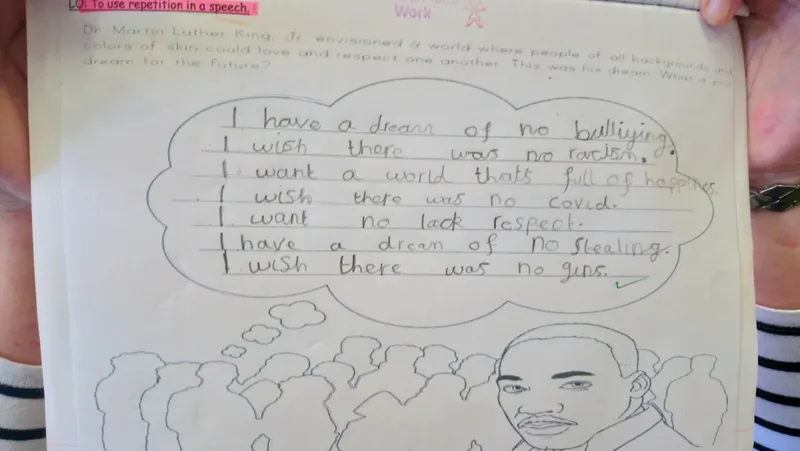 LO: To use repetition in a speech.
Work
Dr. Martin Luther King, Jr. envisioned a world where people of all backgrounds and
colors of skin could love and respect one another. This was his dream. What is your
dream for the future?
I have a dream of no bulliying.
I wish there was no racism.
I want a world thats full of happines.
I wish there was no covid.
I want no lack respect.
I have a dream of no stealing.
I wish there was no guns.